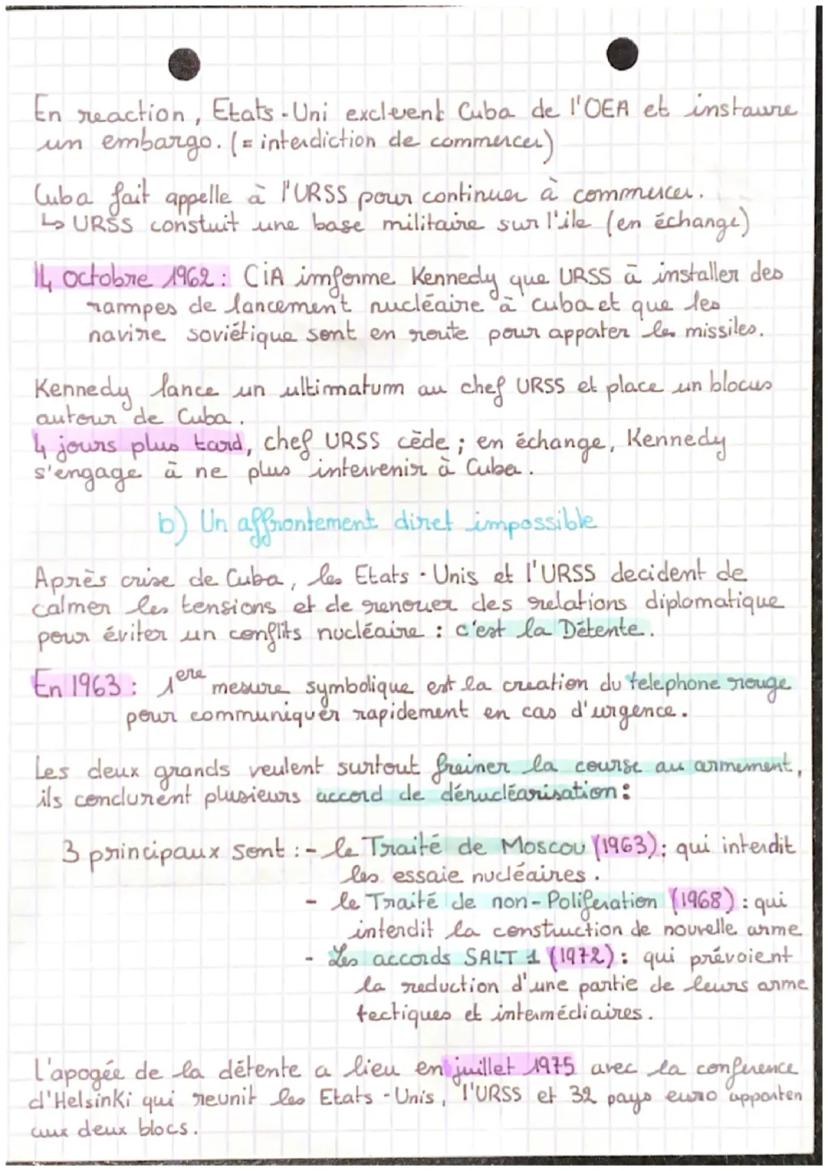 En reaction, Etats-Uni exclvent Cuba de l'OEA et instaure
un embargo. (= interdiction de commercer)
Cuba fait appelle à l'URSS pour continuer à commercer.
↳ URSS constuit une base militaire sur l'ile (en échange)
14 octobre 1962 : CiA imforme Kennedy que URSS à installer des
rampes de lancement nucléaire à cuba et que les
navire soviétique sont en route pour appater les missiles.
Kennedy lance un ultimatum au chef URSS et place un blocus
autour de Cuba.
4 jours plus tard, chef URSS cède ; en échange, Kennedy
s'engage à ne plus intervenir à Cuba.
b) Un affrontement diret impossible
Après crise de Cuba, les Etats-Unis et l'URSS decident de
calmer les tensions et de renouer des relations diplomatique
pour éviter un conflits nucléaire : c'est la Détente.
En 1963 : 1ere mesure symbolique est la creation du telephone rouge
pour communiquer rapidement en cas d'urgence.
Les deux grands veulent surtout freiner la course au armement,
ils conclurent plusieurs accord de dénucléarisation :
3 principaux sont : - le Traité de Moscou (1963) : qui interdit
les essaie nucléaires.
- le Traité de non-Poliferation (1968) : qui
interdit la construction de nouvelle arme
- Les accords SALT 1 (1972) : qui prévoient
la reduction d'une partie de leurs arme
tectiques et intermédiaires.
L'apogée de la détente a lieu en juillet 1975 avec la conference
d'Helsinki qui reunit les Etats-Unis, l'URSS et 32 pays euro apparten
aux deux blocs.